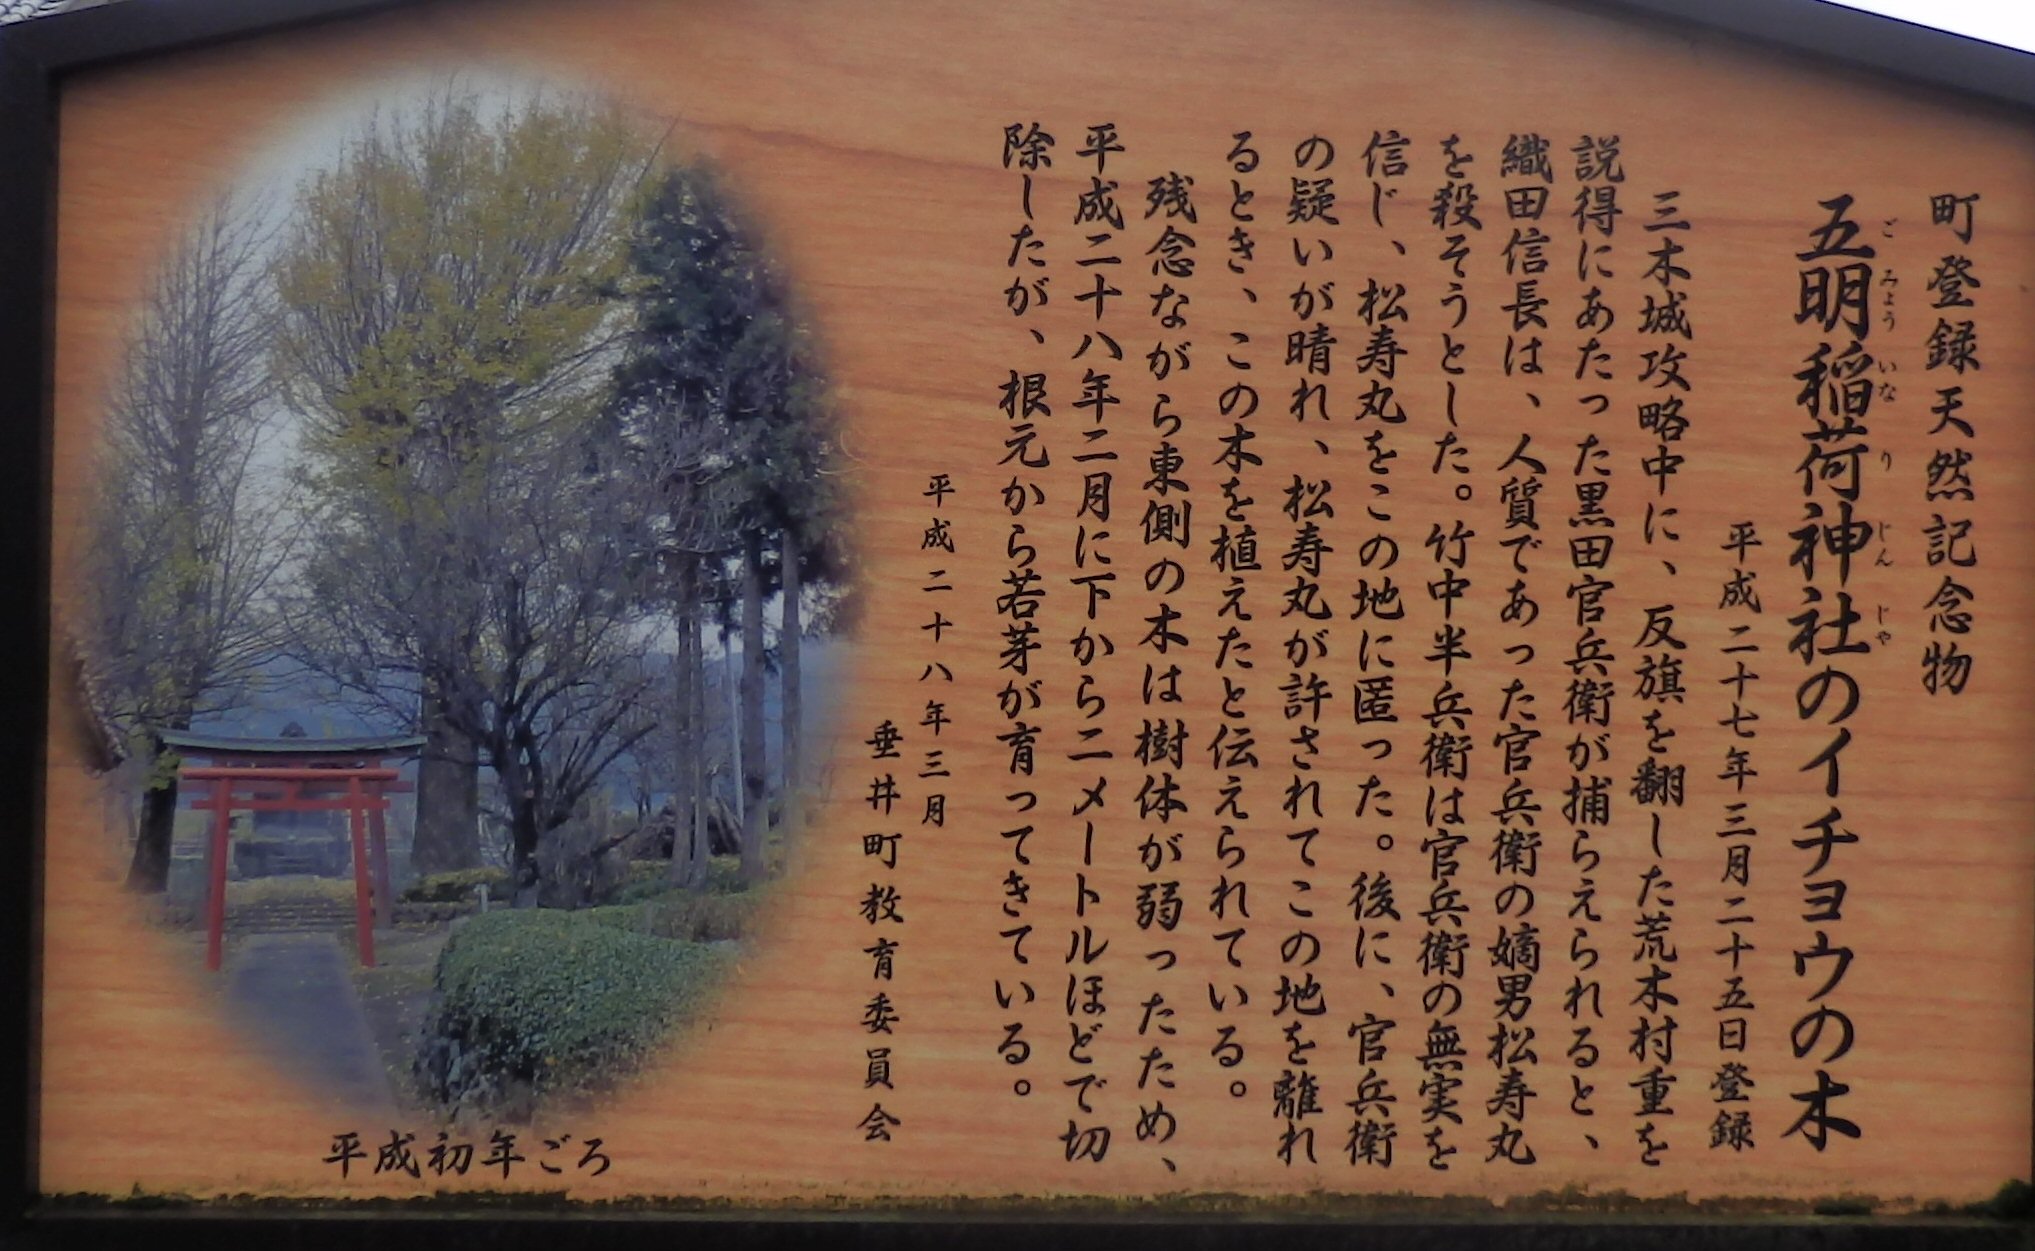 町登録天然記念物
五明稲荷神社のイチョウの木
ごみょういなりじんじゃ
平成二十七年三月二十五日登録
三木城攻略中に、反旗を翻した荒木村重を
説得にあたった黒田官兵衛が捕らえられると、
織田信長は、人質であった官兵衛の嫡男松寿丸
を殺そうとした。竹中半兵衛は官兵衛の無実を
信じ、松寿丸をこの地に匿った。後に、官兵衛
の疑いが晴れ、松寿丸が許されてこの地を離れ
るとき、この木を植えたと伝えられている。
残念ながら東側の木は樹体が弱ったため、
平成二十八年二月に下から二メートルほどで切
除したが、根元から若芽が育ってきている。
平成二十八年三月
垂井町教育委員会
平成初年ごろ